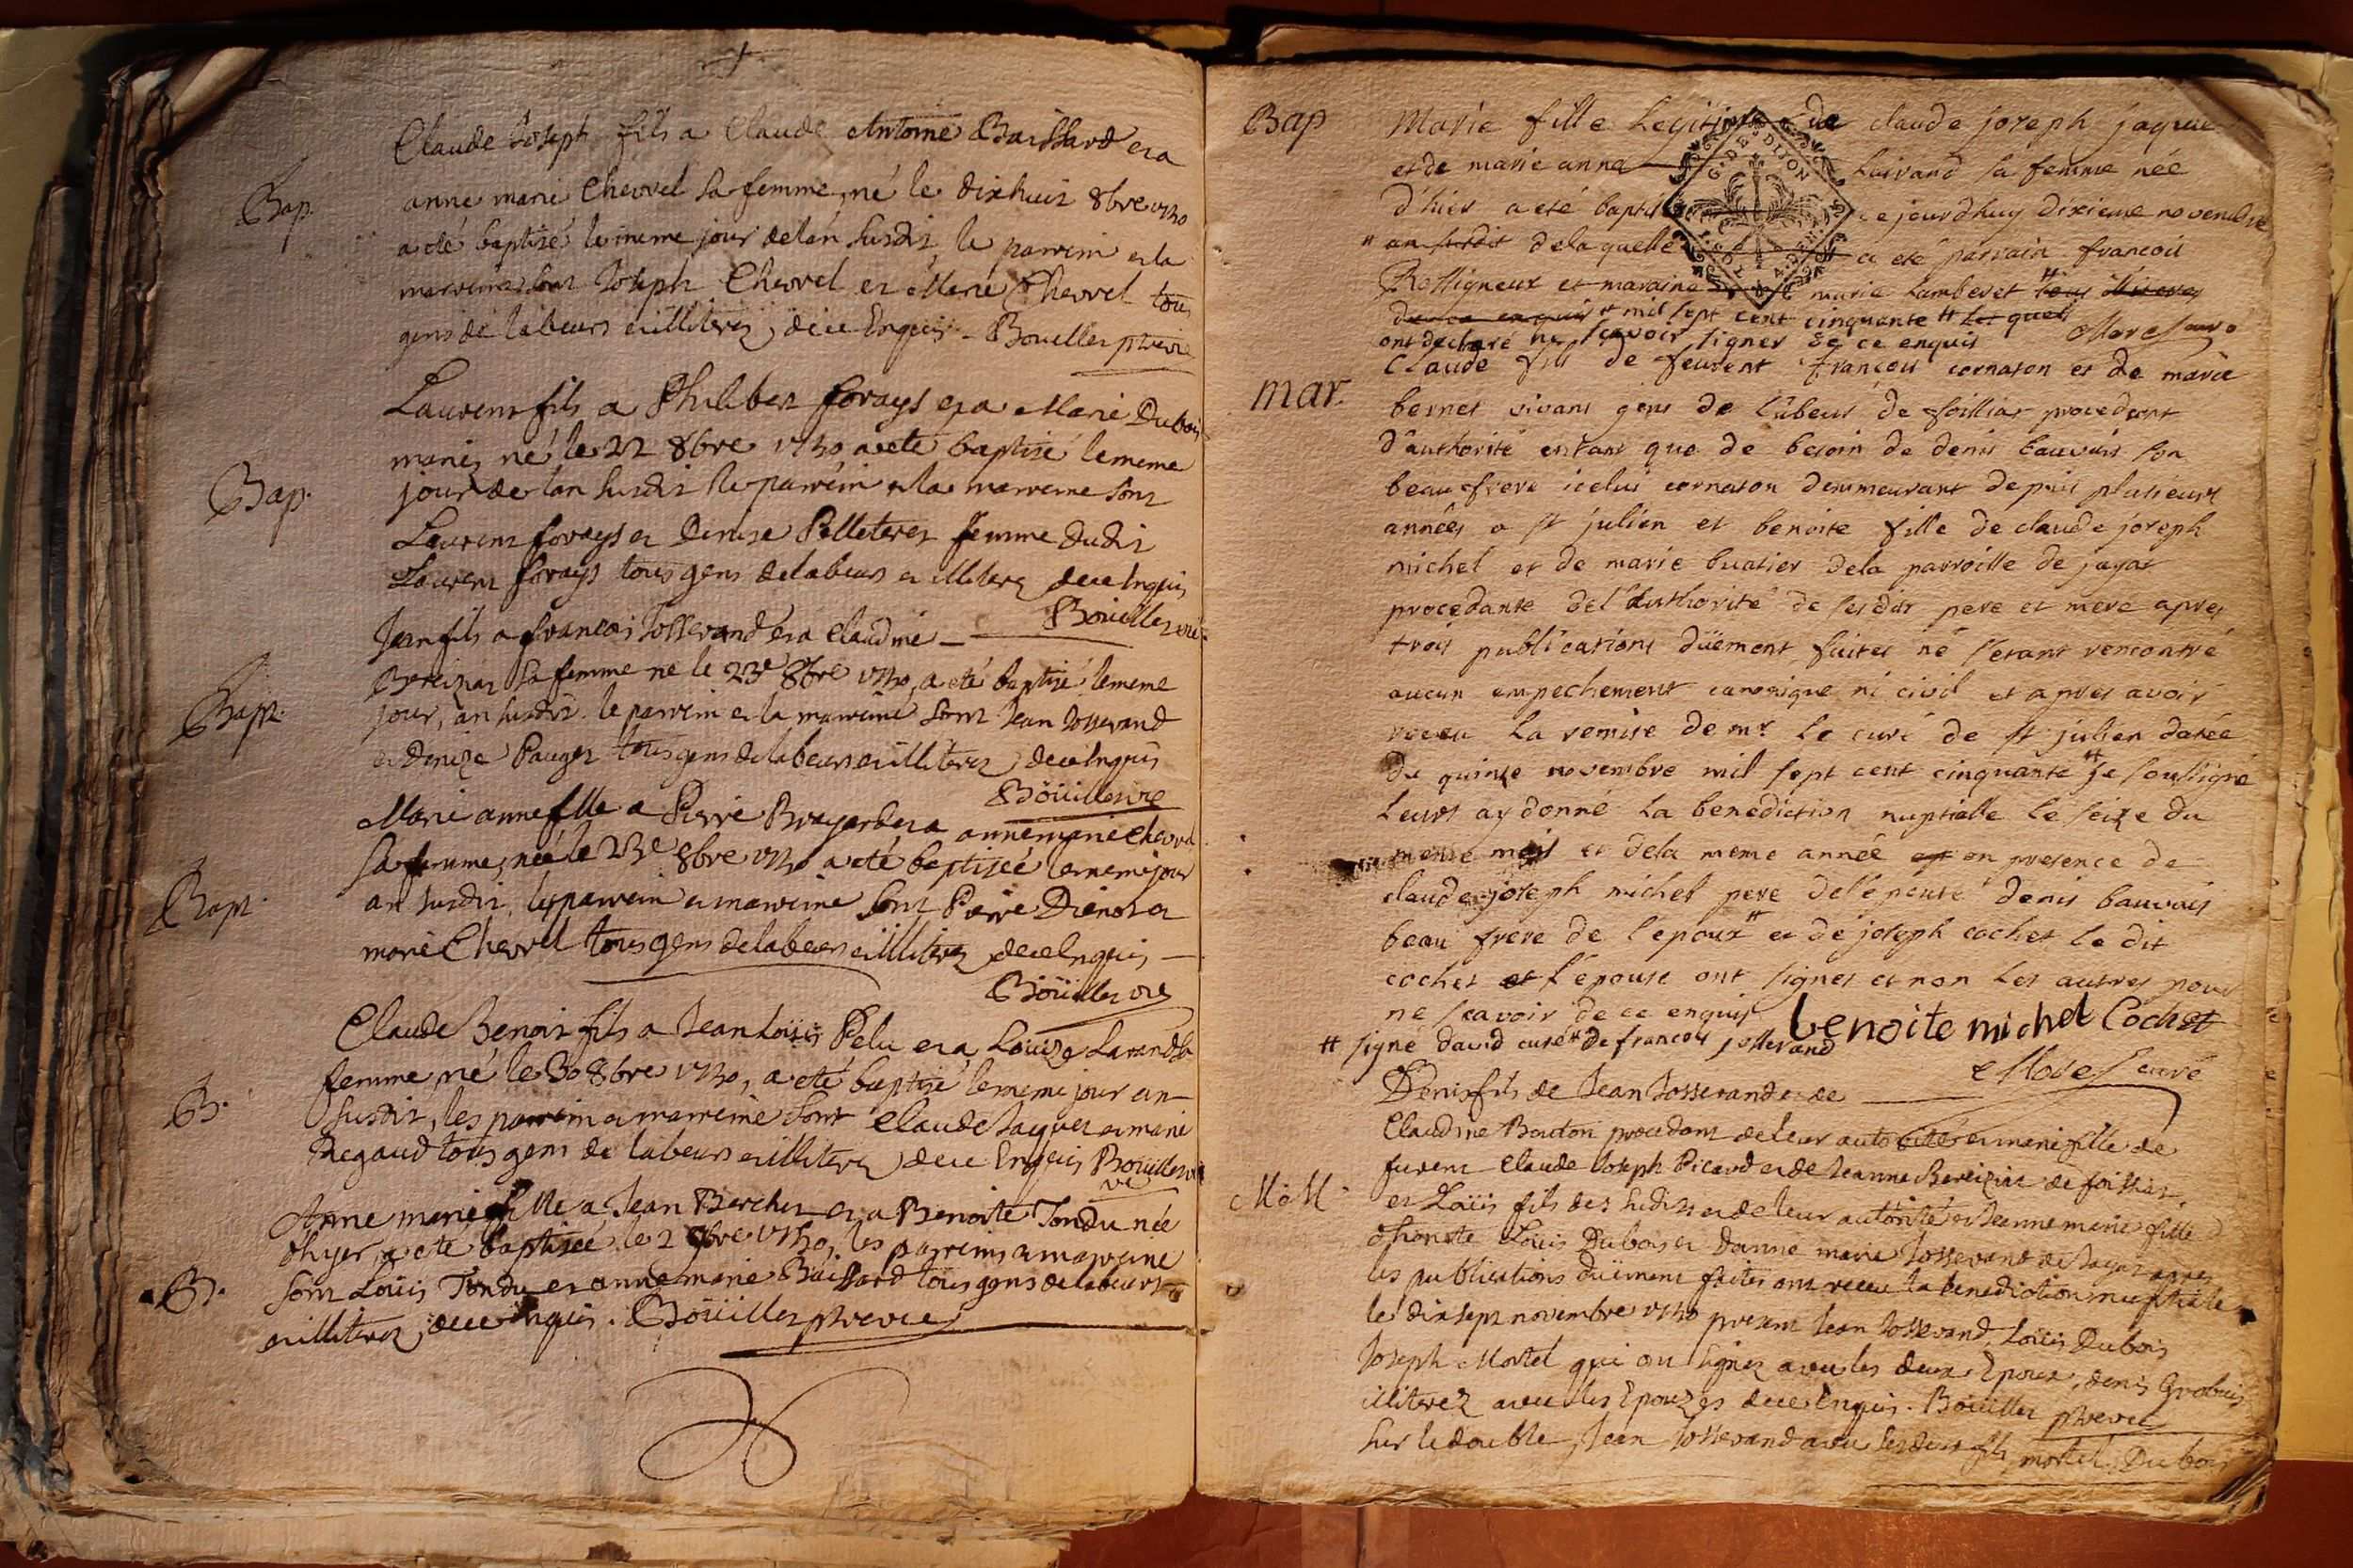 Claude Joseph fils a Claude Antoine Baissard et a
Bap.
anne marie Chevrel sa femme, né le dixhuit 8bre 1750
a eté baptisé le meme jour de l'an susdit, le parrein et la
marreine sont Joseph Chevrel et Marie Chevrel tous
gens de labeurs et illiterez, de ce Enquis - Bouillet pbre vic
Laurent fils a Philibert forays et a Marie Dubois
mariez né le 22 8bre 1750 a eté baptisé le meme
Bap.
jour de l'an susdit le parrein et la marreine sont
Laurent forays et Denise Pelleteret femme dudit
Laurent forays tous gens de labeurs et illiterez de ce Enquis
Boüillet vic
Jean fils a francois Josserand et a Claudine
Bereiziat sa femme né le 23e 8bre 1750, a eté baptisé le meme
Bapt.
jour, an susdit. le parrein et la marreine sont Jean Josserand
et Denize Pauget tous gens de labeurs et illiterez de ce Enquis
Boüillet vic
Marie anne fille a Pierre Broyard et a anne marie Chevrel
sa femme, née le 23e 8bre 1750 a eté baptisée le meme jour
Bapt.
an susdit, les parrein et marreine sont Pierre Drenot et
marie Chevrel tous gens de labeurs et illiterez de ce Enquis
Boüillet vic
Claude Benoit fils a Jean Loüis Pelu et a Loüize Lavand sa
femme, né le 30 8bre 1750, a eté baptisé le meme jour an
B.
susdit, les parrein et marreine sont Claude Jaquet et marie
Regaud tous gens de labeurs et illiterez de ce Enquis Boüillet
vic
Anne marie fille a Jean Berchet et a Benoite Tondu née
d'hyer, a eté baptisée le 2 9bre 1750, les parreins et marreine
B.
sont Loüis Tondu et anne marie Baissard tous gens de labeurs
et illiterez, de ce enquis. Boüillet pbre vic
Bap
Marie fille Legitime de claude joseph jaquet
et de marie anne Laivand sa femme née
d'hier a eté baptisé ce jourdhuy dixieme novembre
" an susdit de laquelle a eté parrain francois
G. DE DIJON
Rossigneux et maraine marie Lamberet tous illiterez
de ce enquis # mil sept cent cinquante # Lesquels
ont declaré ne scavoir signer de ce enquis Morel curé
mar.
Claude fils de feurent francois cornaton et de marie
bernet vivans gens de labeur de foissiat procedant
d'authorité entant que de besoin de denis bauvais son
beau frere icelui cornaton demmeurant depuis plusieurs
années a st julien et benoite fille de claude joseph
michel et de marie buatier dela parroisse de jayat
procedante del'authorité de sesdits pere et mere apres
trois publications düement faites ne s'etant rencontré
aucun empechement canonique ni civil et apres avoir
receu La remise de mr Le curé de st julien datée
du quinze novembre mil sept cent cinquante # je soussigné
Leurs ay donné La benediction nuptialle le seize du
meme mois et dela meme année en presence de
claude joseph michel pere de l'épouse denis bauvais
beau frere de l'epoux # et de joseph cochet le dit
cochet et l'épouse ont signes et non Les autres pour
ne scavoir de ce enquis benoite michel Cochet
# signé david curé # de francois josserand
Morel curé
Denis fils de Jean Josserand et de
Claudine Bouton procedant de leur autorité et marie fille de
furent Claude Joseph Picard et de Jeanne Bereiziat de foissiat,
M
et Loüis fils des susdits et de leur autorité et Jeanne marie fille
d'honete Loüis Dubois et d'anne marie Josserand de Jayat apres
les publications düement faites ont receu la benediction nuptiale
le dix sept novembre 1750 present Jean Josserand, Loüis Dubois
Joseph Mortel qui ont signez avec les deux Epoux, denis
illiterez avec les Epouzes de ce Enquis. Boüillet pbre vic
sur le double, Jean Josserand avec ses deux fils, mortel, Dubois